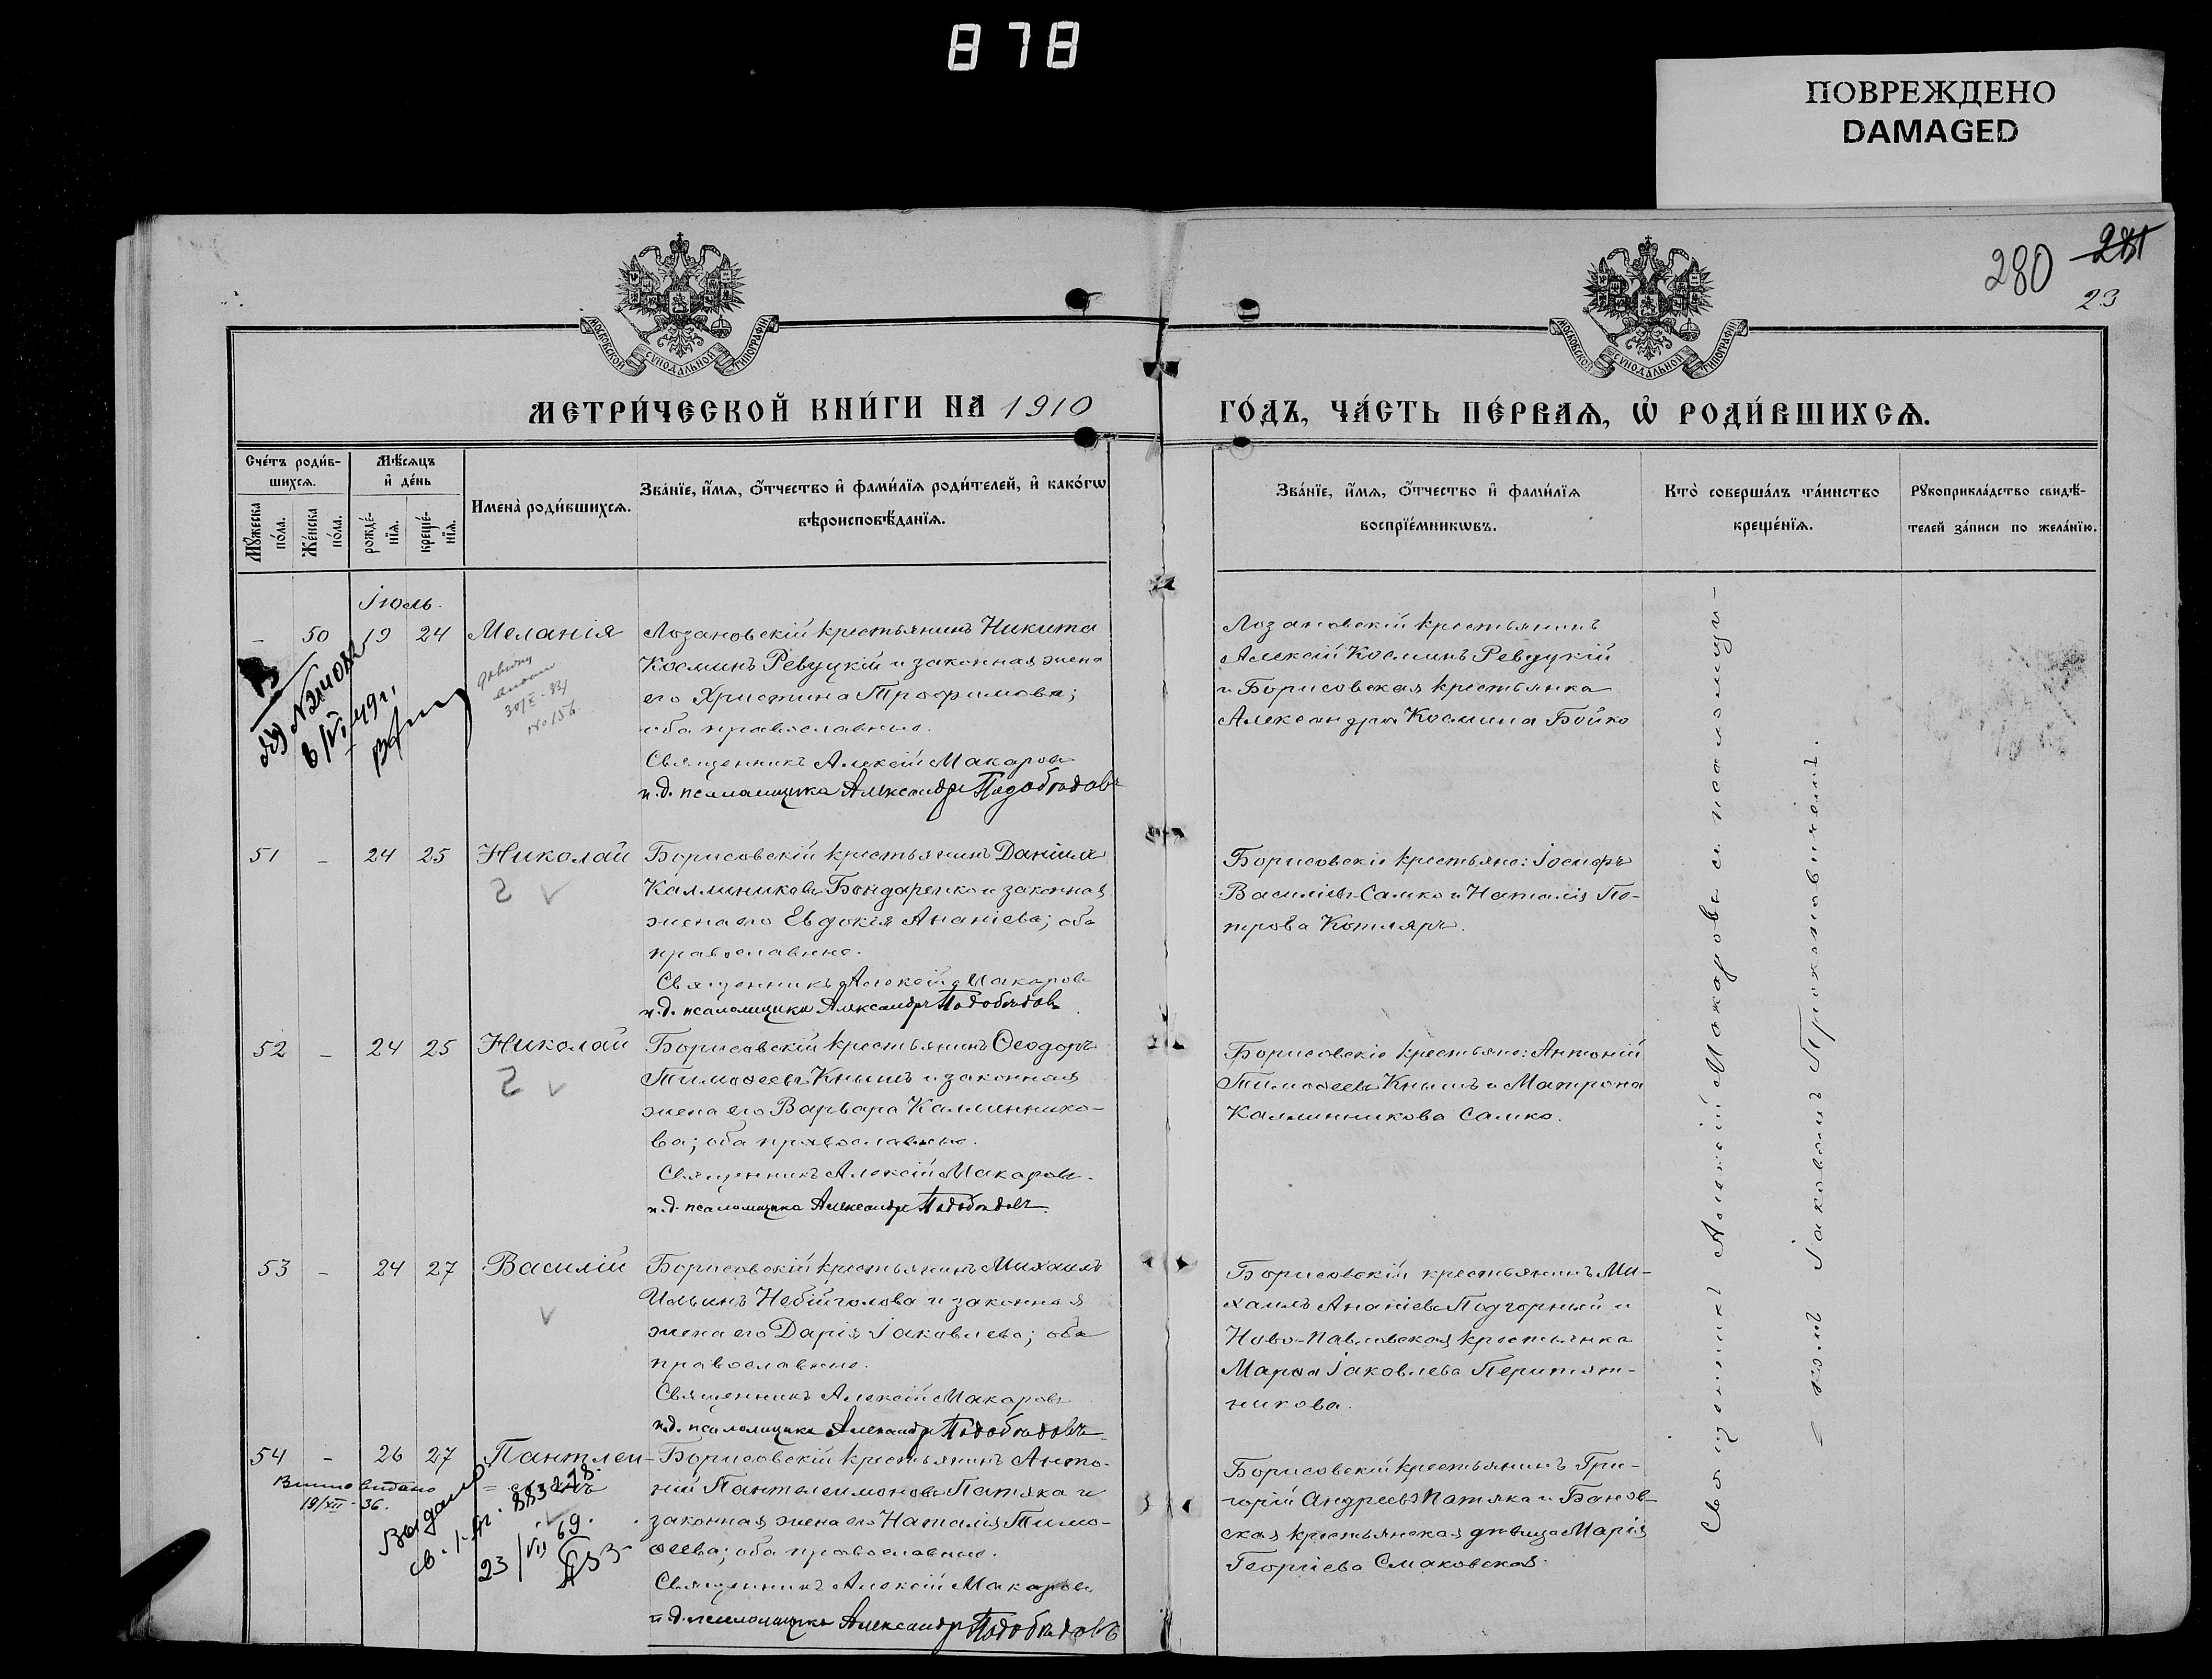 878
ПОВРЕЖДЕНО
DAMAGED
280 281
23
МОСКОВСКОЙ СУНОДАЛЬНОЙ ТИПОГРАФІИ
МОСКОВСКОЙ СУНОДАЛЬНОЙ ТИПОГРАФІИ
МЕТРИ́ЧЕСКОЙ КНИ́ГИ НА 1910
ГО́ДЪ, ЧА́СТЬ ПЕ́РВАѦ, Ѡ҆ РОДИ́ВШИХСѦ.
Сче́тъ роди́в-
шихсѧ.
Мꙋ́жеска по́ла.
Же́нска по́ла.
Мѣ́сѧцъ и҆ де́нь
рожде́-
нїѧ.
креще́-
нїѧ.
Имена̀ роди́вшихсѧ.
Зва́нїе, и҆́мѧ, ѻ҆́тчество и҆ фами́лїѧ роди́телей, и҆ како́гѡ
вѣроисповѣ́данїѧ.
Зва́нїе, и҆́мѧ, ѻ҆́тчество и҆ фами́лїѧ
воспрїе́мникѡвъ.
Кто̀ соверша́лъ та́инство
креще́нїѧ.
Рꙋкоприкла́дство свидѣ́-
телей за́писи по жела́нїю.
Іюль.
– 50 19 24 Меланія
Лозановскій крестьянинъ Никита
Косминъ Ревуцкій и законная жена
его Христина Трофимова;
оба православные.
Священникъ Алексій Макаровъ
и.д. псаломщика Александръ
30/X-83
№ 156.
8/VI 49 г.
Лозановскій крестьянинъ
Алексій Косминъ Ревуцкій
и Борисовская крестьянка
Александра Космина Бойко
51 – 24 25 Николай
2 ✓
Борисовскій крестьянинъ Даніилъ
Каллиниковъ Бондаренко и законная
жена его Евдокія Ананіева; оба
православные.
Священникъ Алексій Макаровъ
и.д. псаломщика Александръ
Борисовскіе крестьяне: Іосифъ
Василіевъ Самко и Наталія Пе-
трова Котляръ.
52 – 24 25 Николай
2 ✓
Борисовскій крестьянинъ Ѳеодоръ
Тимоѳеевъ Кнышъ и законная
жена его Варвара Каллиннико-
ва; оба православные.
Священникъ Алексій Макаровъ.
и.д. псаломщика Александръ
Борисовскіе крестьяне: Антоній
Тимоѳеевъ Кнышъ и Матрона
Каллинникова Самко.
53 – 24 27 Василій
✓
Борисовскій крестьянинъ Михаилъ
Ильинъ Небійголова и законная
жена его Дарія Іаковлева; оба
православные.
Священникъ Алексій Макаровъ
и.д. псаломщика Александръ
Борисовскій крестьянинъ Ми-
хаилъ Ананіевъ Подгорный и
Ново-Павловская крестьянка
Марія Іаковлева Перитят-
никова.
54 – 26 27 Пантлеи-
Видано
19/XII-36.
Выдано
23/VII 69.
Борисовскій крестьянинъ Анто-
ній Пантелеимоновъ Патяка и
законная жена его Наталія Тимо-
ѳеева; оба православные.
Священникъ Алексій Макаровъ
и.д. псаломщика Александръ
Борисовскій крестьянинъ Гри-
горій Андреевъ Патяка и Банов-
ская крестьянская дѣвица Марія
Георгіева Смаковская.
Священникъ Алексій Макаровъ съ псаломщи-
комъ Іаковомъ Прокоповичемъ.